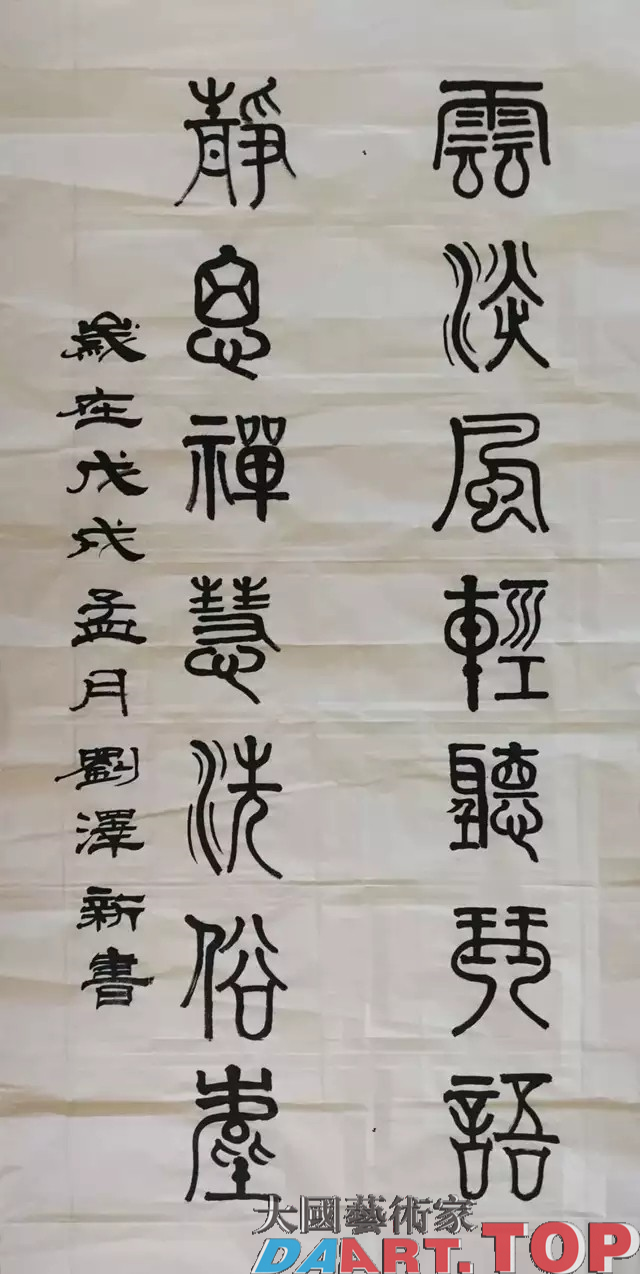 雲淡風輕聽琴語
靜息禪慧洗俗塵
歲在戊戌孟月劉澤新書
大國藝術家
DAART.TOP